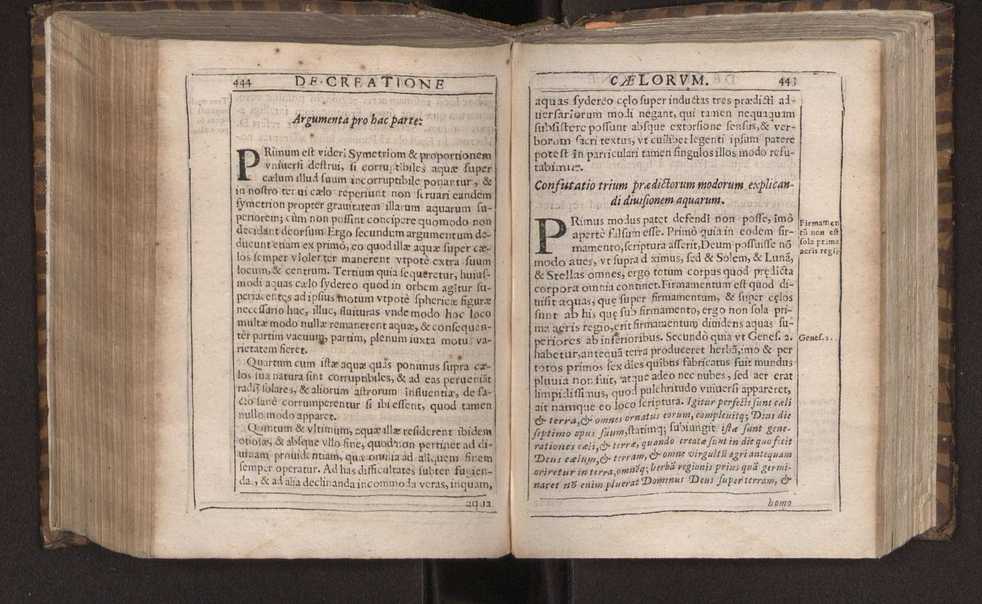 444 DE CREATIONE
Argumenta pro hac parte:
PRimum est videri Symetriom & proportionem
vniuersi destrui, si corruptibiles aquæ super
cælum illud suum incorruptibile ponantur, &
in nostro terreui cælo reperiunt non seruari eandem
symetrion propter grauitatem illarum aquarum su-
periorem; cùm non possint concipere quomodo non
decidant deorsum. Ergo secundum argumentum de-
ducunt etiam ex primo, eo quod illæ aquæ super cæ-
los semper violenter manerent vtpotè extra suum
locum, & centrum. Tertium quia sequeretur, huius-
modi aquas cælo sydereo quod in orbem agitur su-
periacentes ad ipsius motum vtpotè sphericæ figuræ
necessario hac, illuc, fluituras vnde modo hac loco
multæ modo nullæ remanerent aquæ, & consequen-
tèr partim vacuum, partim, plenum iuxta motus va-
rietatem fieret.
Quartum cum istæ aquæ quas ponimus supra cæ-
los sua natura sint corruptibiles, & ad eas perueniāt
radij solares, & aliorum astrorum influentiæ, de fa-
cto sanè corrumperentur si ibi essent, quod tamen
nullo modo apparet.
Quintum & vltimum, aquæ illæ residerent ibidem
otiosæ, & absque vllo fine, quod non pertinet ad di-
uinam prouidentiam, quæ omnia ad aliquem finem
semper operatur. Ad has difficultates subter fugien-
das, & ad alia declinanda incommoda veras, inquam,
aqua
CÆLORVM. 443
aquas sydereo cęlo super inductas tres prædicti ad-
uersariorum modi negant, qui tamen nequaquam
subsistere possunt absque extorsione sensus, & ver-
borum sacri textus, vt cuilibet legenti ipsum patere
potest in particulari tamen singulos illos modo refu-
tabimus.
Confutatio trium prædictorum modorum explican-
di diuisionem aquarum.
PRimus modus patet defendi non posse, imò
apertè falsum esse. Primò quia in eodem fir-
mamento, scriptura asserit, Deum posuisse nō
modo aues, vt supra diximus, sed & Solem, & Lunā,
& Stellas omnes, ergo totum corpus quod prędicta
corpora omnia continet. Firmamentum est quod di-
uisit aquas, quę super firmamentum, & super cęlos
sunt ab his quę sub firmamento, ergo non sola pri-
ma aeris regio, erit firmamentum diuidens aquas su-
periores ab inferioribus. Secundò quia vt Genes. 2.
habetur, antequā terra produceret herbā, imo & per
totos primos sex dies quibus fabricatus fuit mundus
pluuia non fuit, atque adeo nec nubes, sed aer erat
limpidissimus, quod pulchritudo vniuersi appareret,
ait namque eo loco scriptura. Igitur perfecti sunt cæli
& terra, & omnes ornatus eorum, compleuitq; Deus die
septimo opus suum, statimq; subiungit istæ sunt gene-
rationes cæli, & terræ, quando creatæ sunt in die quo fecit
Deus cælum, & terram, & omne virgultū agri antequam
oriretur in terra, omnēq; herbā regionis prius quā germi-
naret nō enim pluerat Dominus Deus super terram, &
homo
Firmamen
tū non est
sola prima
aeris regio
Genes. 2.